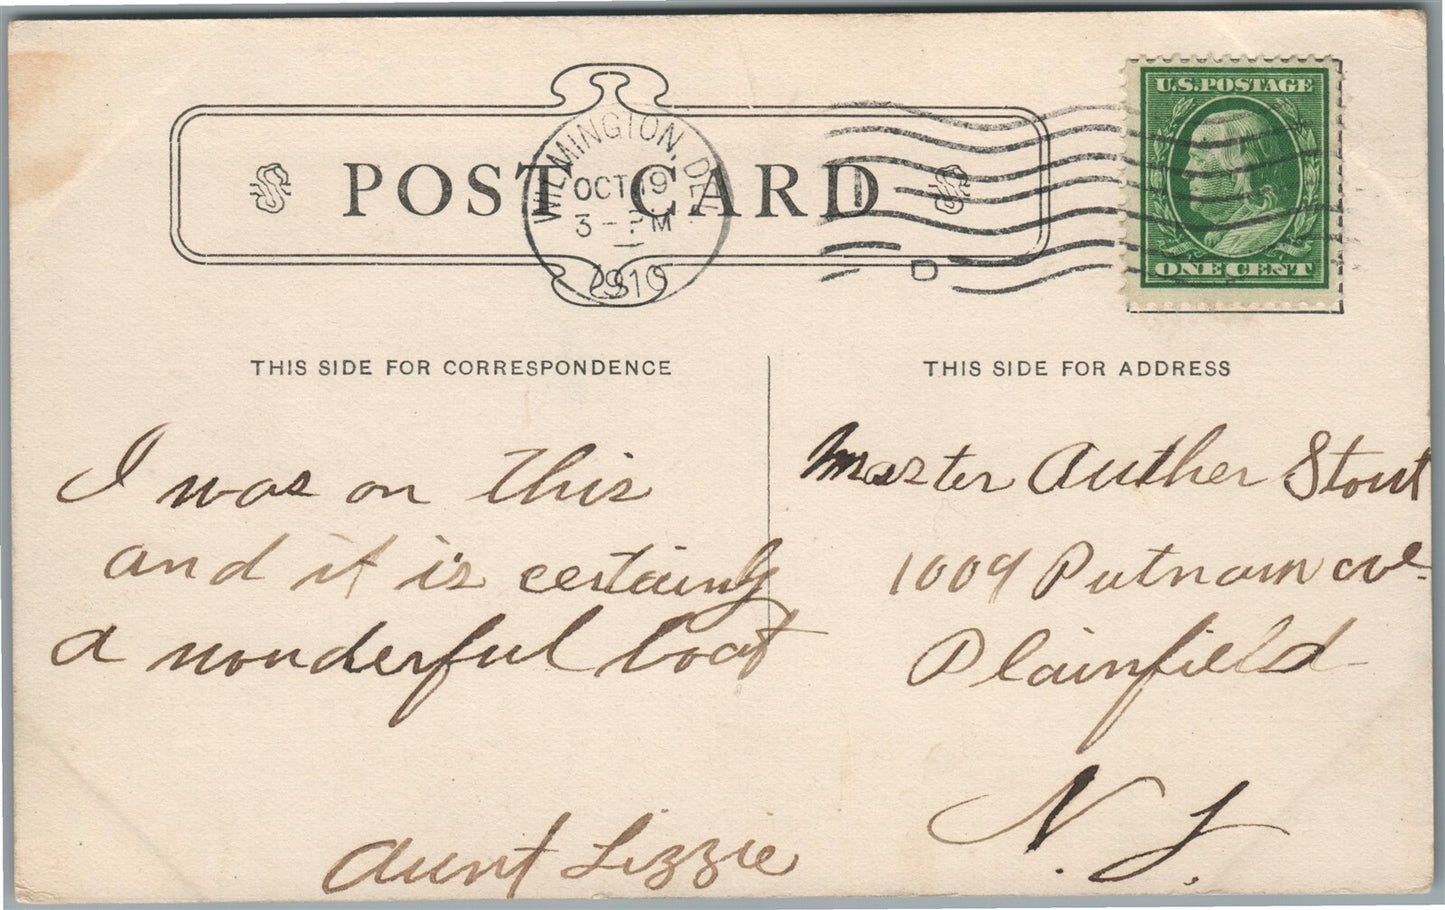 POST CARD
WILMINGTON, DEL.
OCT 19
3 - PM
1910
D
U.S. POSTAGE
ONE CENT
THIS SIDE FOR CORRESPONDENCE
I was on this
and it is certainly
a wonderful boat
Aunt Lizzie
THIS SIDE FOR ADDRESS
Master Auther Stout
1009 Putnam ave
Plainfield
N. J.